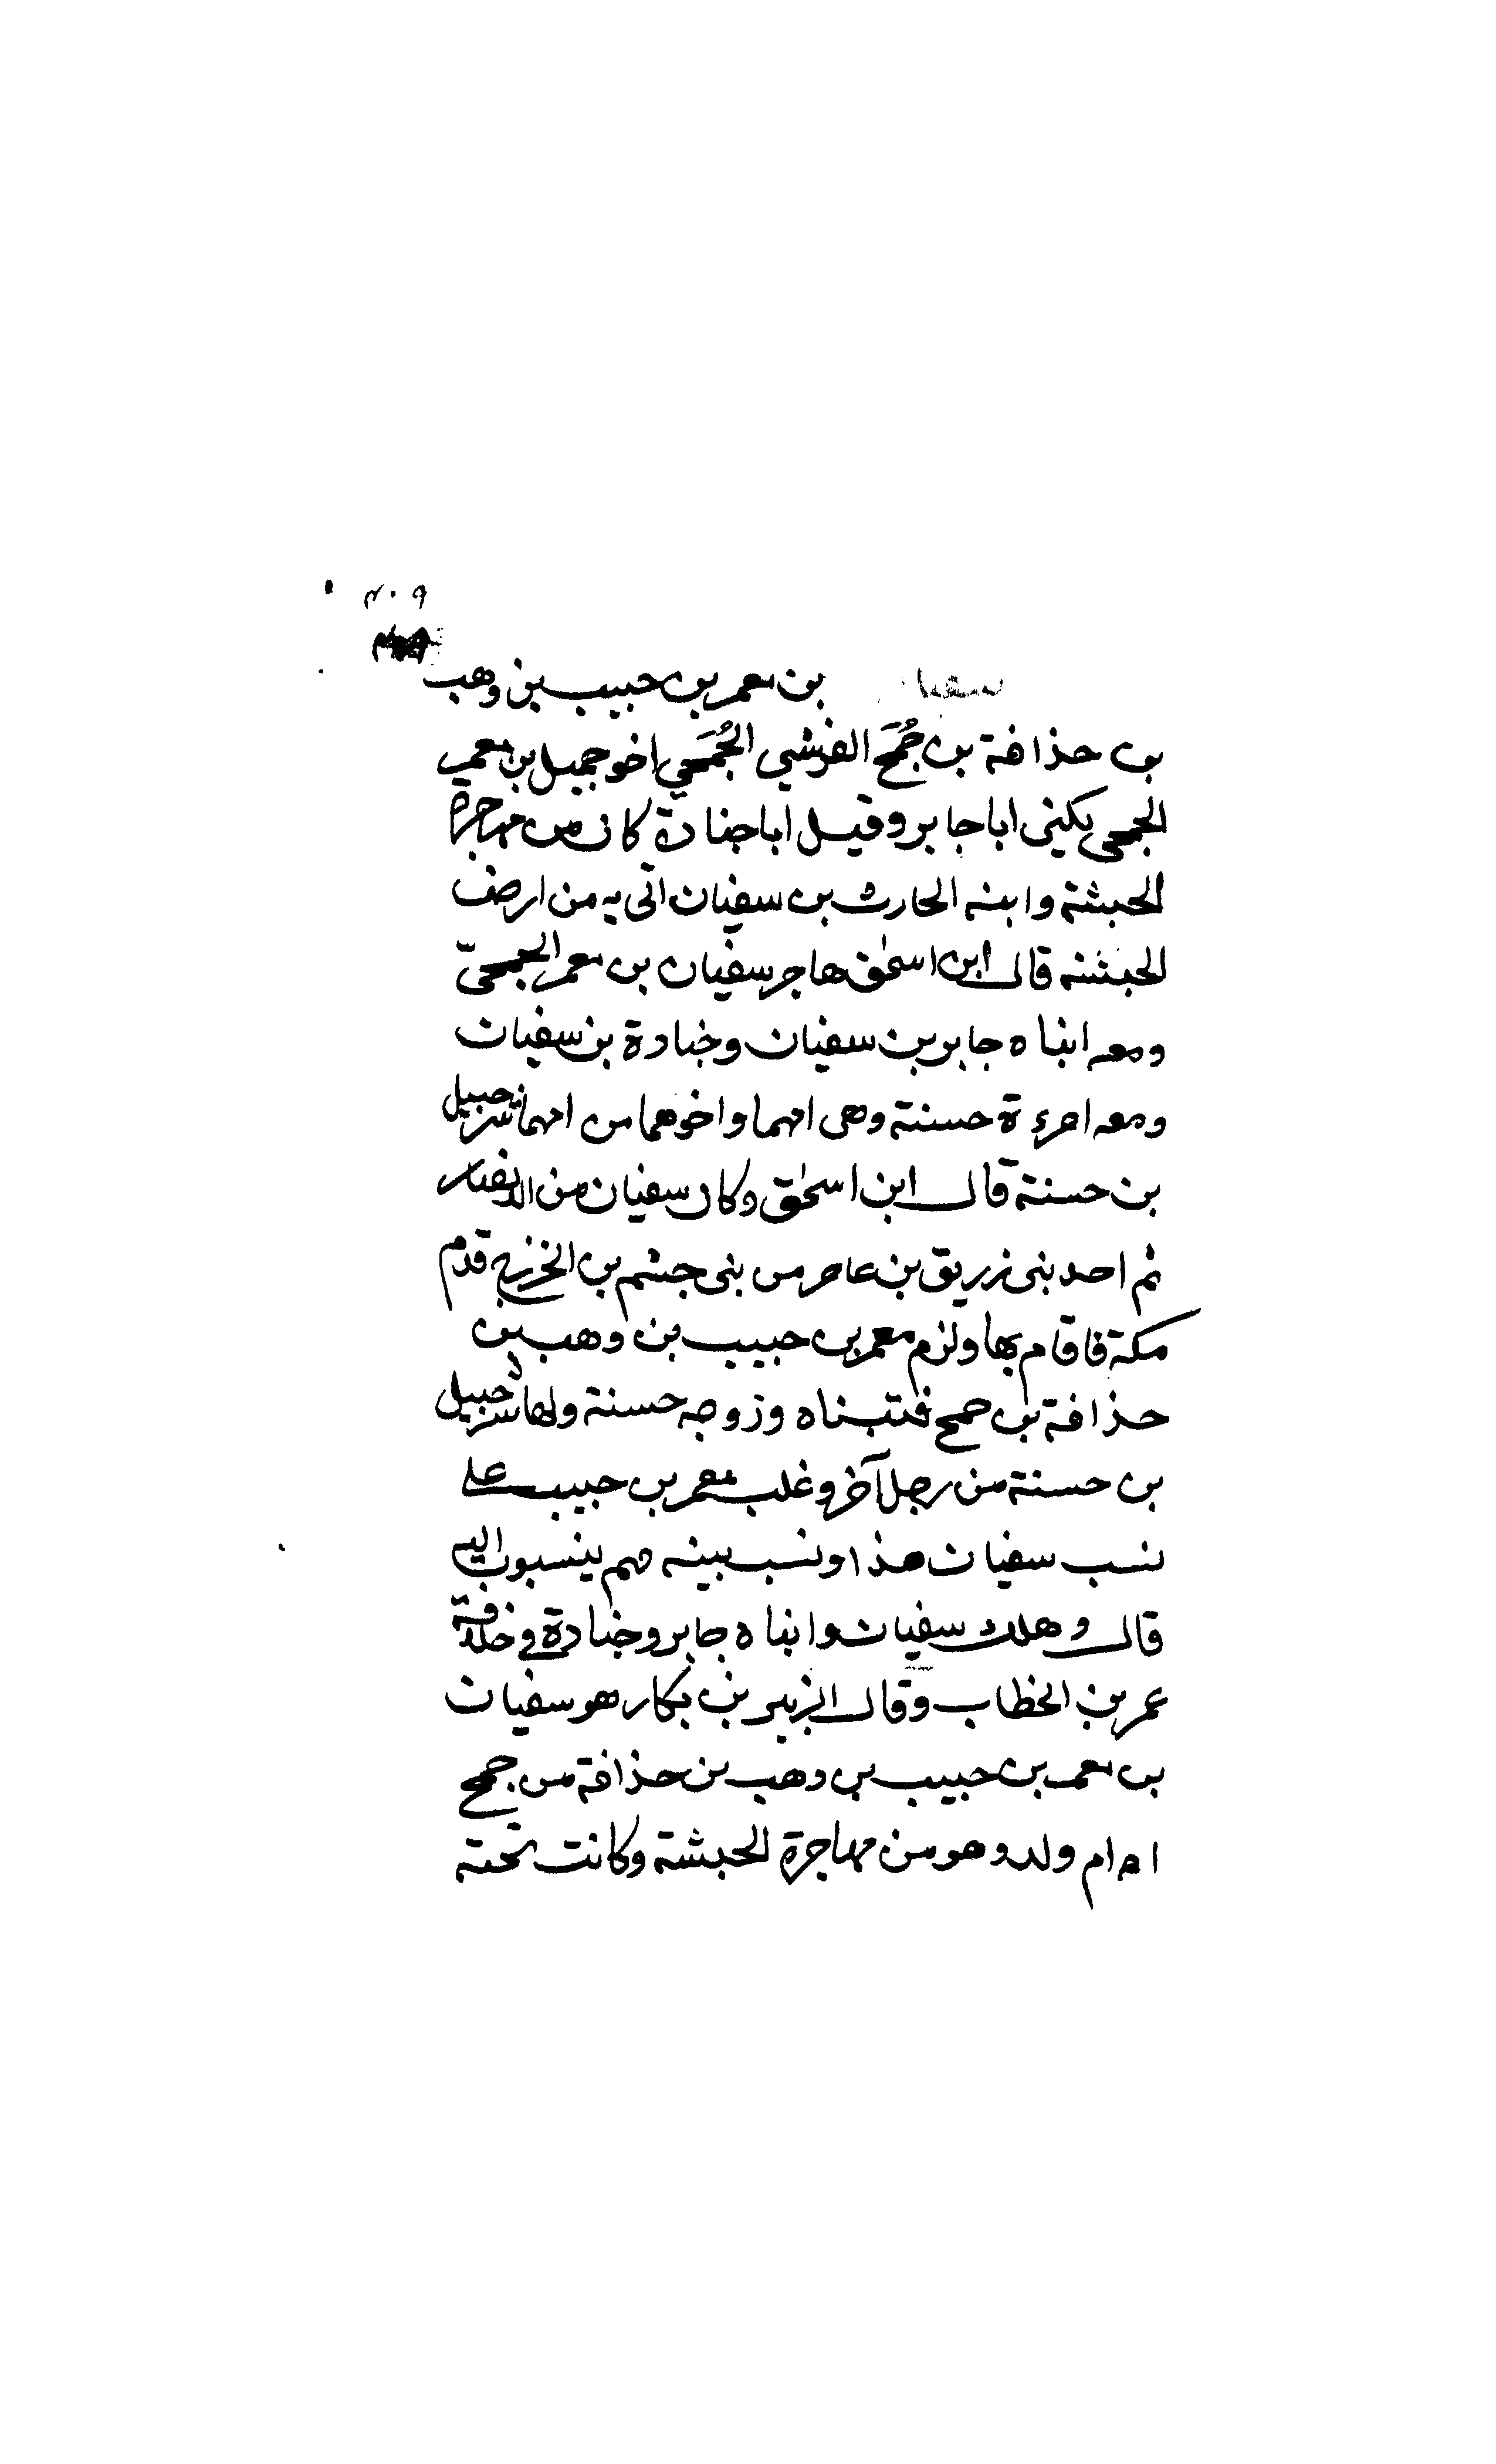 ٤٠٩
سفيان بن معمر بن حبيب بن وهب
بن حذافة بن جُمَح القرشي الجُمَحي اخو جميل بن معمر
الجمحى يكنى ابا جابر وقيل ابا جنادة كان من مهاجرة
الحبشة وابنه الحارث بن سفيان اتى به من ارض
الحبشة قال ابن اسحٰق هاجر سفيان بن معمر الجمحىّ
ومعه ابناه جابر بن سفيان وجنادة بن سفيان
ومعه امرءة حسنة وهى امهما واخوهما من امهما شرحبيل
بن حسنة قال ابن اسحٰق وكان سفيان من الانصار
ثم احد بنى زريق بن عامر من بنى جشم بن الخزرج قدم
مكة فاقام بها ولزم معمر بن حبيب بن وهب بن
حذافة بن جمح فتبناه وزوجه حسنة ولها شرحبيل
بن حسنة من رجل آخر وغلب معمر بن حبيب على
نسب سفيان هذا ونسب بينه فهم ينسبون اليه
قال وهلك سفيان وابناه جابر وجنادة في خلافة
عمر بن الخطاب وقال الزبير بن بكار هو سفيان
بن معمر بن حبيب بن وهب بن حذافة من جمح
امه ام ولد وهو من مهاجرة الحبشة وكانت تحته